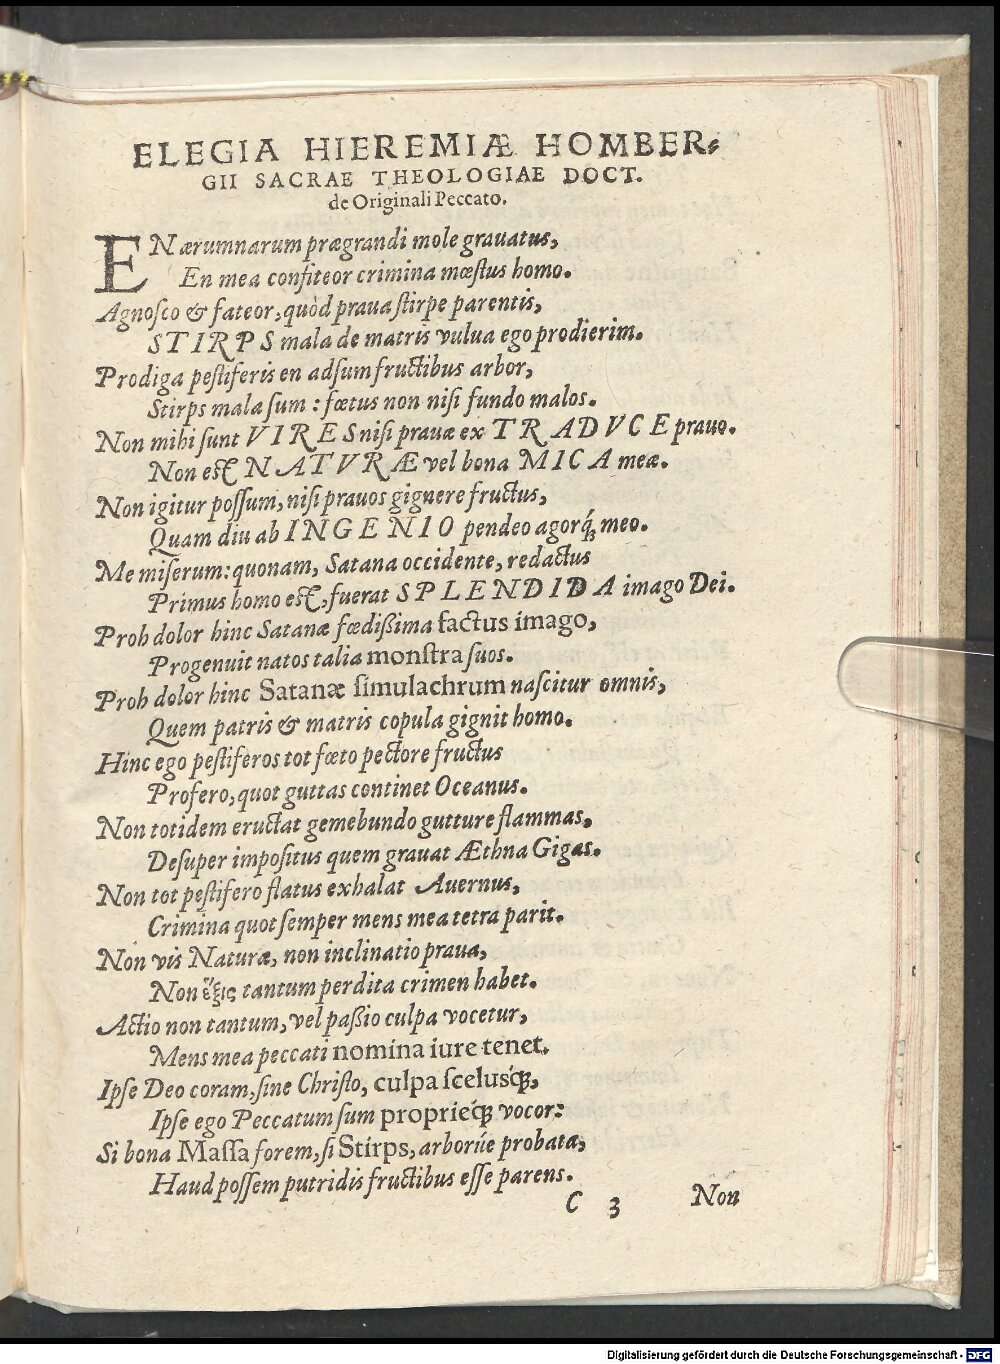 ELEGIA HIEREMIÆ HOMBER⸗
GII SACRAE THEOLOGIAE DOCT.
de Originali Peccato.
EN ærumnarum prægrandi mole grauatus,
En mea confiteor crimina mœstus homo.
Agnoſco & fateor, quòd praua ſtirpe parentis,
STIRPS mala de matris vulua ego prodierim.
Prodiga peſtiferis en adſum fructibus arbor,
Stirps mala ſum: fœtus non niſi fundo malos.
Non mihi ſunt VIRES niſi prauæ ex TRADVCE prauo.
Non eſt NATVRÆ vel bona MICA meæ.
Non igitur poſſum, niſi prauos gignere fructus,
Quam diu ab INGENIO pendeo agorq́; meo.
Me miſerum: quonam, Satana occidente, redactus
Primus homo eſt, fuerat SPLENDIDA imago Dei.
Proh dolor hinc Satanæ fœdißima factus imago,
Progenuit natos talia monſtra ſuos.
Proh dolor hinc Satanæ ſimulachrum naſcitur omnis,
Quem patris & matris copula gignit homo.
Hinc ego peſtiferos tot fœto pectore fructus
Profero, quot guttas continet Oceanus.
Non totidem eructat gemebundo gutture flammas,
Deſuper impoſitus quem grauat Æthna Gigas.
Non tot peſtifero flatus exhalat Auernus,
Crimina quot ſemper mens mea tetra parit.
Non vis Naturæ, non inclinatio praua,
Non ἕξις tantum perdita crimen habet.
Actio non tantum, vel paßio culpa vocetur,
Mens mea peccati nomina iure tenet.
Ipſe Deo coram, ſine Chriſto, culpa ſcelusq́;,
Ipſe ego Peccatum ſum proprieq́; vocor:
Si bona Maſſa forem, ſi Stirps, arborúe probata,
Haud poſſem putridis fructibus eſſe parens.
C 3 Non
Digitalisierung gefördert durch die Deutsche Forschungsgemeinschaft - DFG